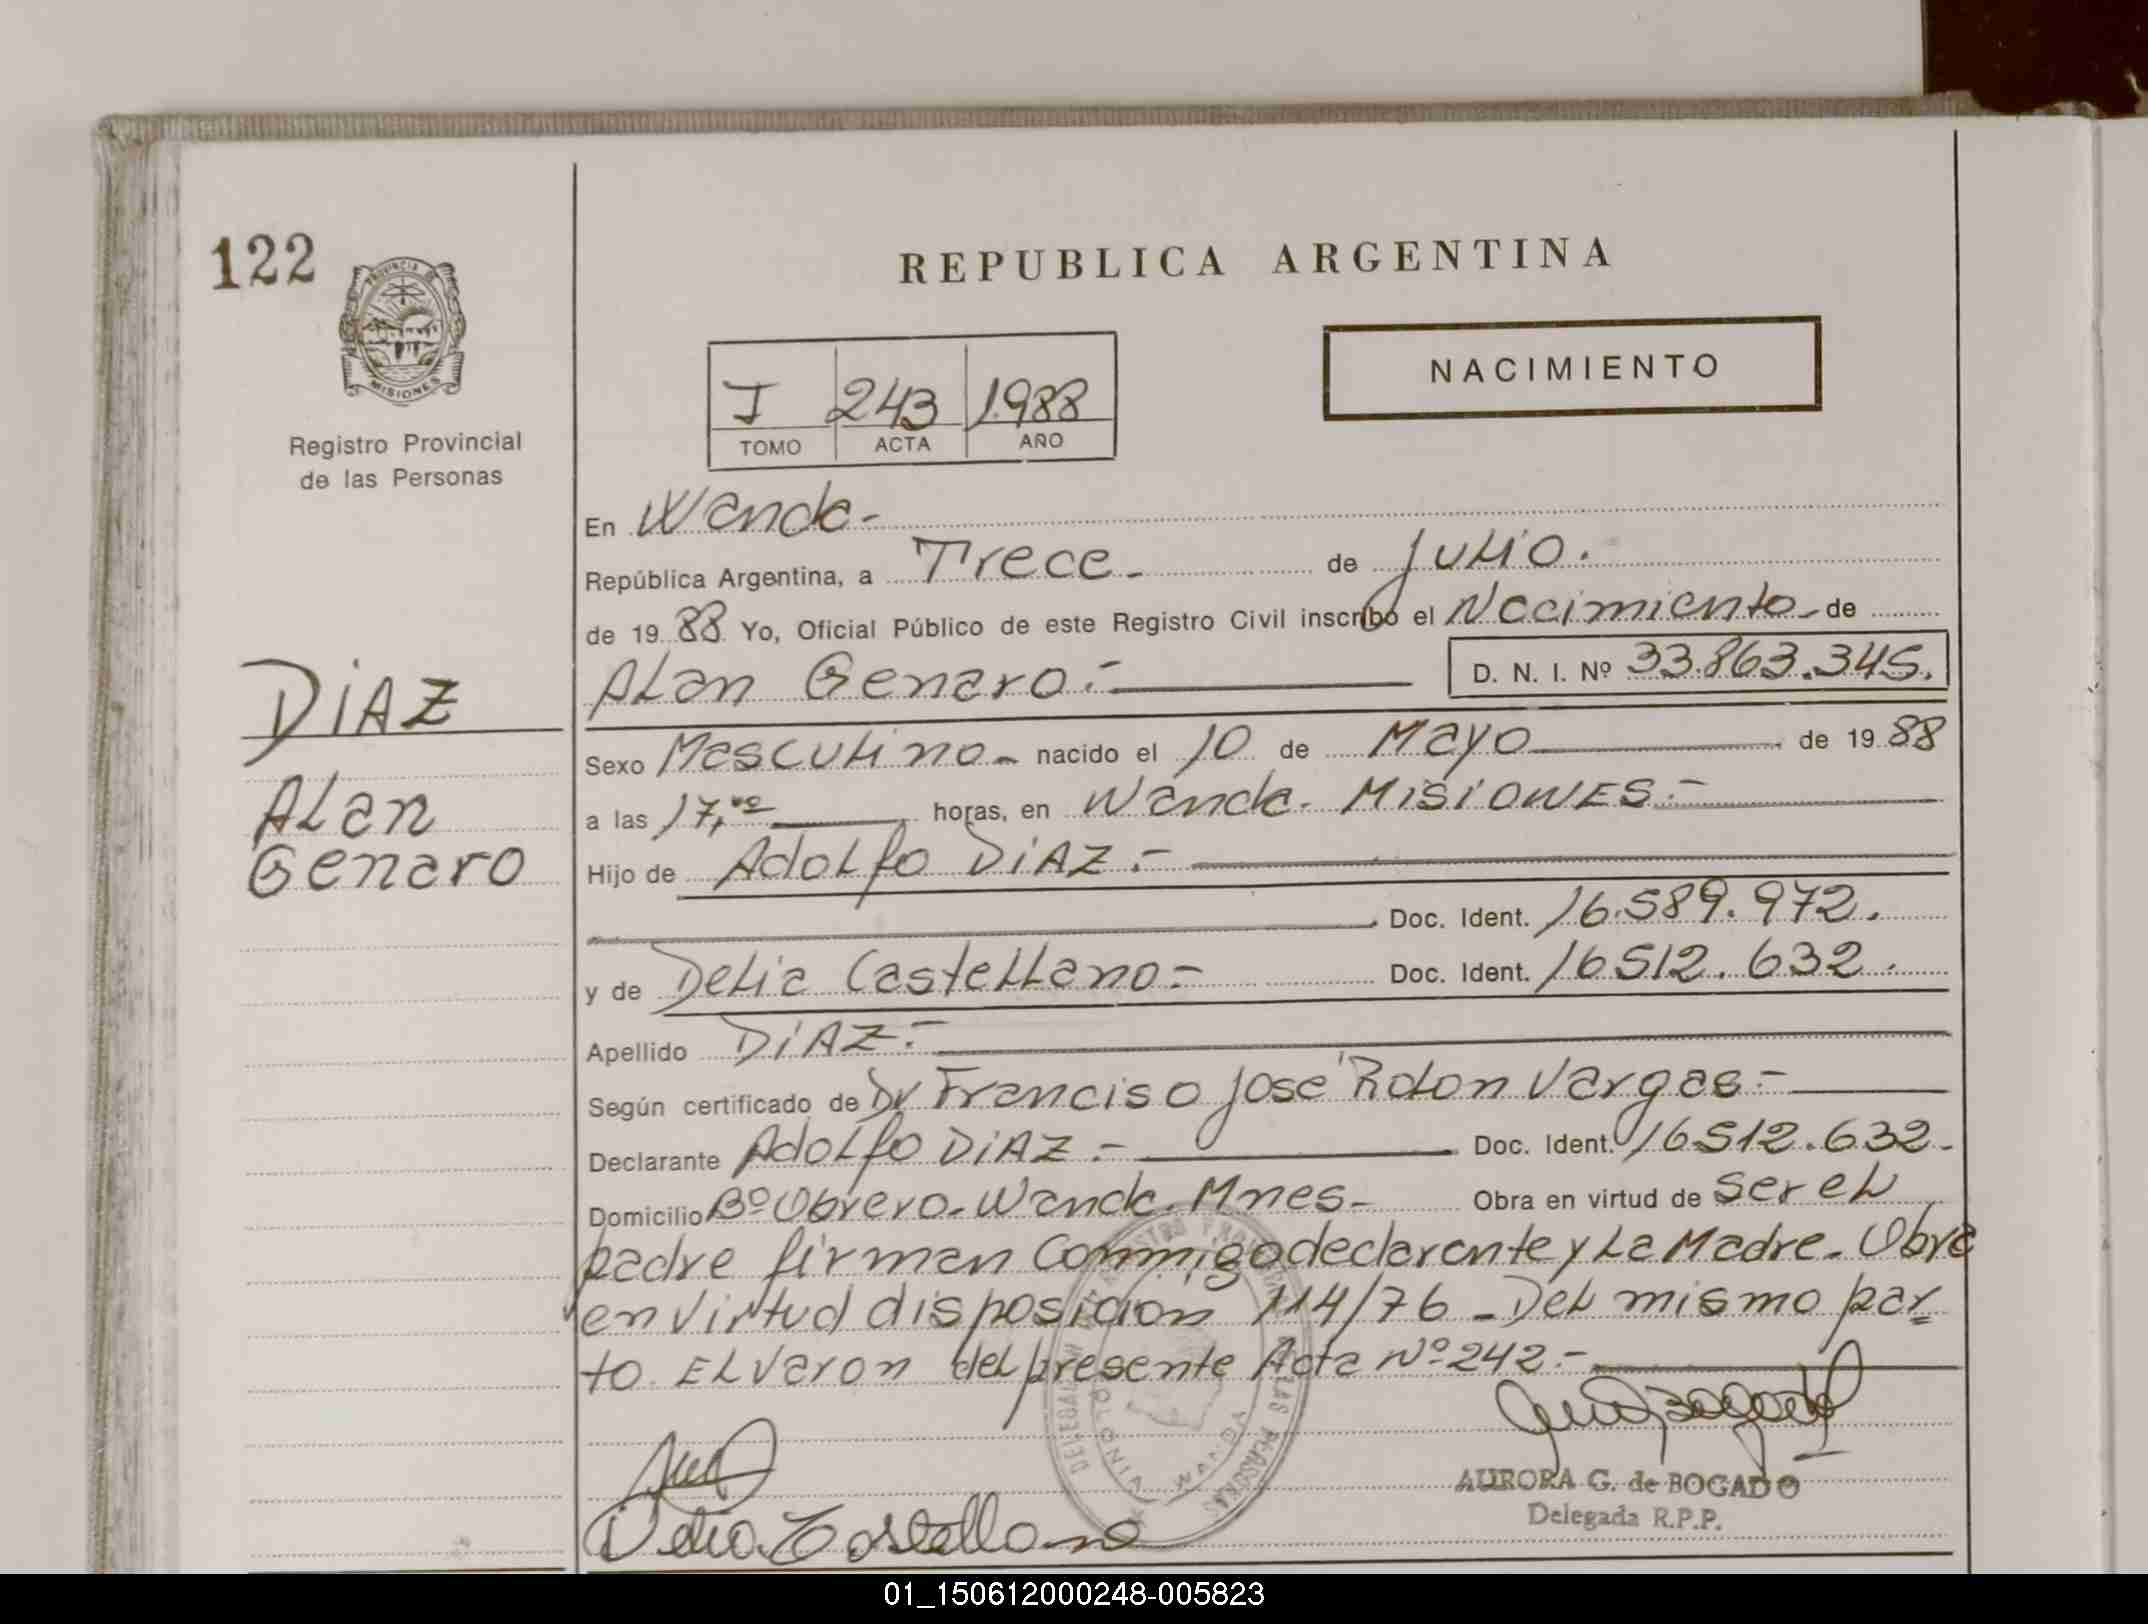 122
PROVINCIA DE
MISIONES
Registro Provincial
de las Personas
REPUBLICA ARGENTINA
NACIMIENTO
I 243 1.988
TOMO ACTA AÑO
En Wanda-
República Argentina, a Trece- de Julio.
de 19 88 Yo, Oficial Público de este Registro Civil inscribo el Nacimiento- de
Alan Genaro.-
D. N. I. Nº 33.863.345.
DIAZ
Alan
Genaro
Sexo Masculino- nacido el 10 de Mayo de 19 88
a las 17,00 horas, en Wanda. MISIONES.-
Hijo de Adolfo DIAZ.-
Doc. Ident. 16.589.972.
y de Delia Castellano.- Doc. Ident. 16512.632.
Apellido DIAZ.-
Según certificado de Dr Franciso José Rolon Vargas.-
Declarante Adolfo DIAZ.- Doc. Ident. 16512.632-
Domicilio Bº Obrero-Wanda. Mnes- Obra en virtud de ser el
padre firman Conmigo declarante y La Madre. Obra
en Virtud disposicion 114/76 - Del mismo par=
to. EL Varon del presente Acta Nº 242.-
DELEGACION WANDA
Delia Castellano
AURORA G. de BOGADO
Delegada R.P.P.
01_150612000248-005823